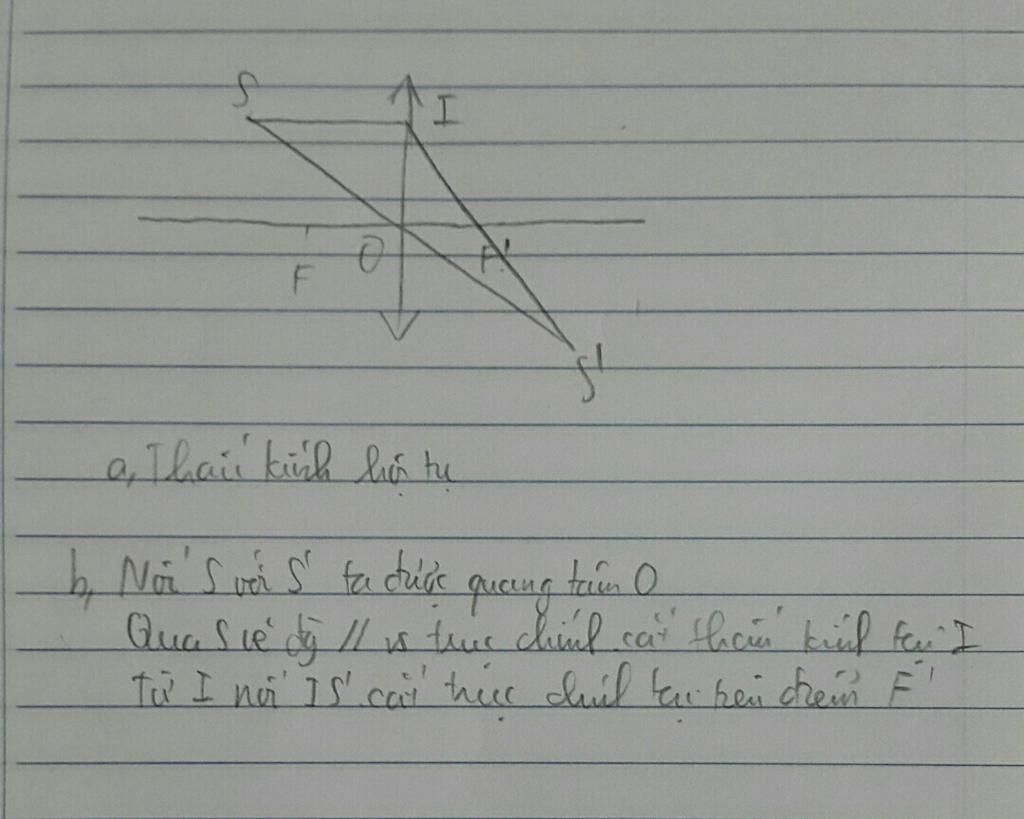 S
I
O
F
F'
S'
a, Thấu kính hội tụ
b, Nối S với S' ta được quang tâm O
Qua S vẽ đg // vs trục chính cắt thấu kính tại I
Từ I nối IS' cắt trục chính tại tiêu điểm F'